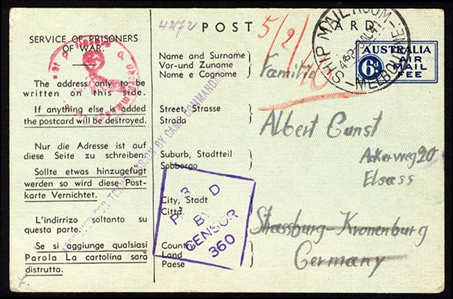 42172
POST CARD
5/2/
SERVICE OF PRISONERS
OF WAR.
The address only to be
written on this side.
If anything else is added
the postcard will be destroyed.
Nur die Adresse ist auf
diese Seite zu schreiben.
Sollte etwas hinzugefugt
werden so wird diese Post-
karte Vernichtet.
L'indirizzo soltanto su
questa parte.
Se si aggiunge qualsiasi
Parola La cartolina sarà
distrutta.
Name and Surname
Vor-und Zuname
Nome e Cognome
Familie
Street, Strasse
Strada
Albert Gunst
Ackerweg 20
Suburb, Stadtteil
Sobborgo
Elsass
City, Stadt
Citta
Strassburg-Kronenburg
Country
Land
Paese
Germany
SHIP MAIL ROOM
MELBOURNE
AUSTRALIA
6D
AIR
MAIL
FEE
BY CAMP COMMAND
3 D
PASSED
BY
CENSOR
360